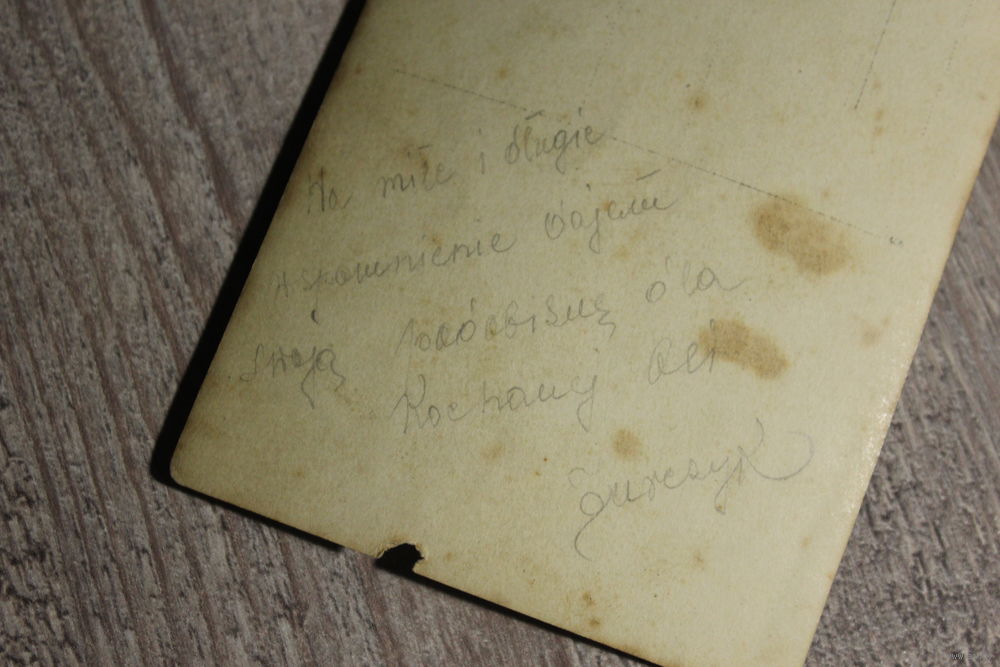 Na miłe i długie
wspomnienie dajemy
swoją podobiznę dla
Kochanej Oli
Jurczyk